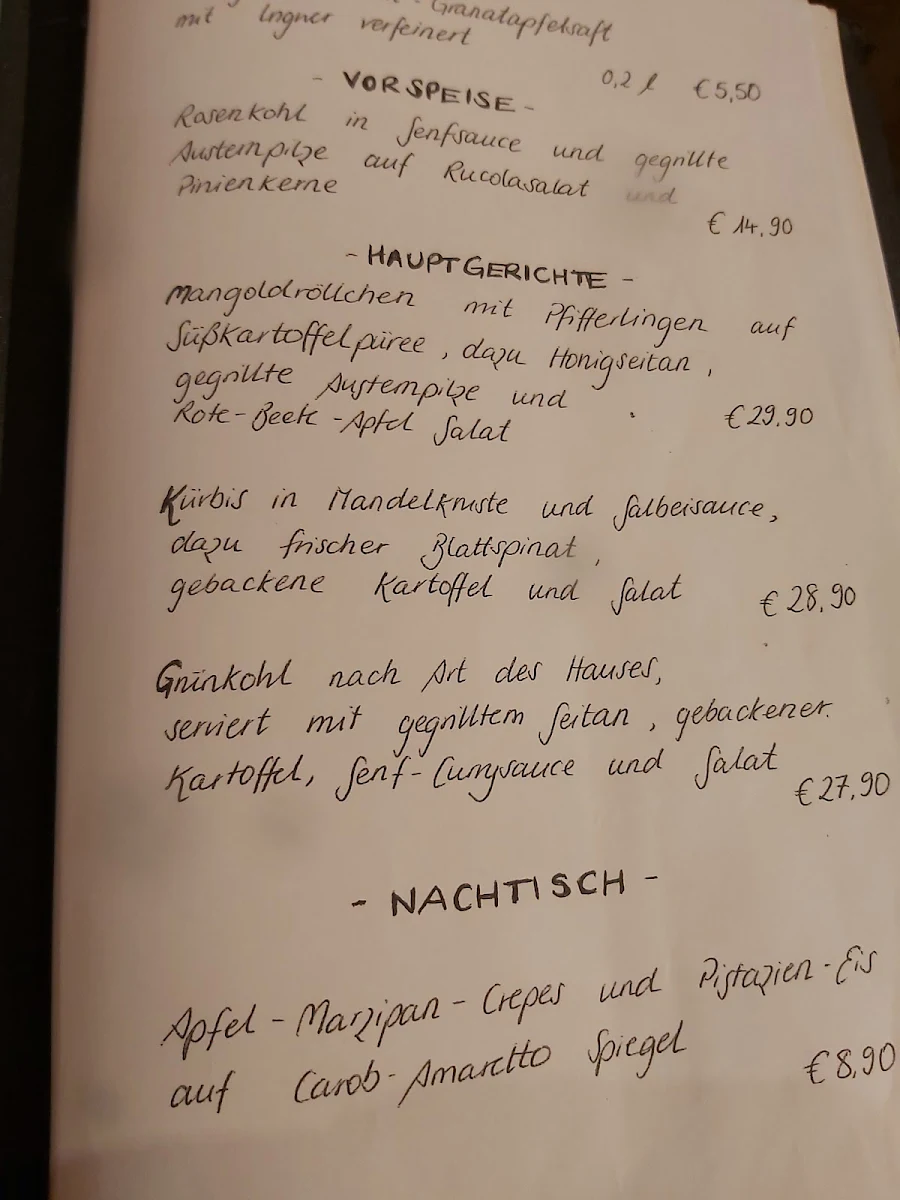 Granatapfelsaft
mit Ingner verfeinert
0,2 l €5,50
- VORSPEISE -
Rosenkohl in Senfsauce und gegrillte
Austernpilze auf Rucolasalat und
Pinienkerne
€ 14,90
- HAUPTGERICHTE -
Mangoldröllchen mit Pfifferlingen auf
Süßkartoffelpüree, dazu Honigseitan,
gegrillte Austernpilze und
Rote-Beete-Apfel Salat €29,90
Kürbis in Mandelkruste und Salbeisauce,
dazu frischer Blattspinat,
gebackene Kartoffel und Salat € 28,90
Grünkohl nach Art des Hauses,
serviert mit gegrilltem Seitan, gebackener
Kartoffel, Senf-Currysauce und Salat
€27,90
- NACHTISCH -
Apfel-Marzipan-Crepes und Pistazien-Eis
auf Carob-Amaretto Spiegel
€8,90